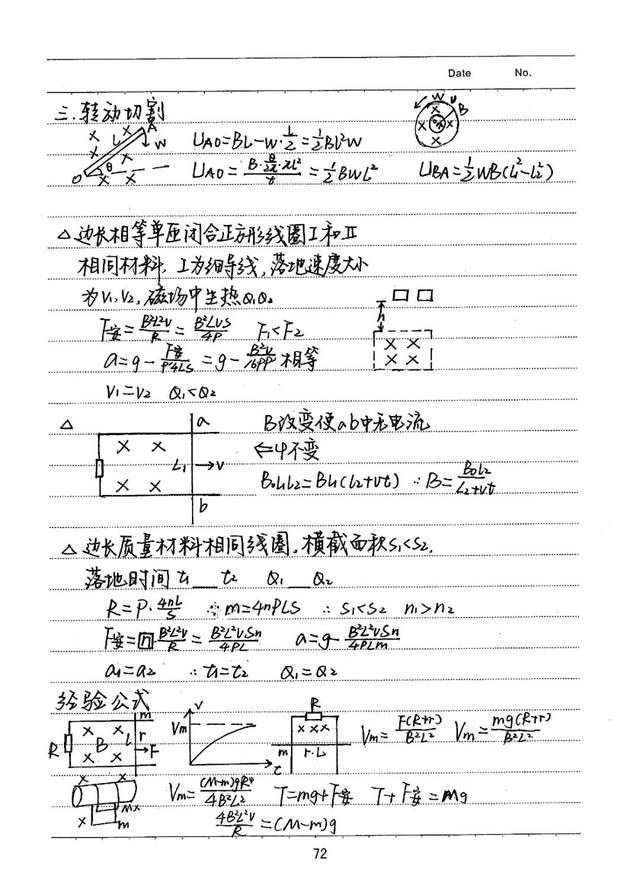 Date No.
三.转动切割
U_AO=BL-W·L/2=½BL²W
U_AO=(B·θ/2π·πL²)/t=½BWL² U_BA=½WB(L₁²-L₂²)
△边长相等单匝闭合正方形线圈I和II
相同材料,I为细导线,落地速度大小
为V₁,V₂,磁场中生热Q₁Q₂
F安=B²L²V/R=B²LVS/4ρ F₁<F₂
a=g-F安/ρ'4LS=g-B²V/16ρρ' 相等
V₁=V₂ Q₁<Q₂
△ a B改变使ab中无电流
L₁ →v ⇐φ不变
B₀L₁L₂=BL₁(L₂+vt) ∴B=B₀L₂/(L₂+vt)
b
△边长质量材料相同线圈,横截面积S₁<S₂,
落地时间t₁__t₂ Q₁__Q₂
R=ρ·4nL/S ∴m=4nρLS ∴S₁<S₂ n₁>n₂
F安=n B²L²V/R=B²L²VSn/4ρL a=g-B²L²VSn/4ρLm
a₁=a₂ ∴t₁=t₂ Q₁=Q₂
经验公式
R B L m r F V Vm t R m r.L Vm=F(R+r)/B²L² Vm=mg(R+r)/B²L²
M m Vm=(M-m)gR/4B²L² T=mg+F安 T+F安=Mg
4B²L²V/R=(M-m)g
72